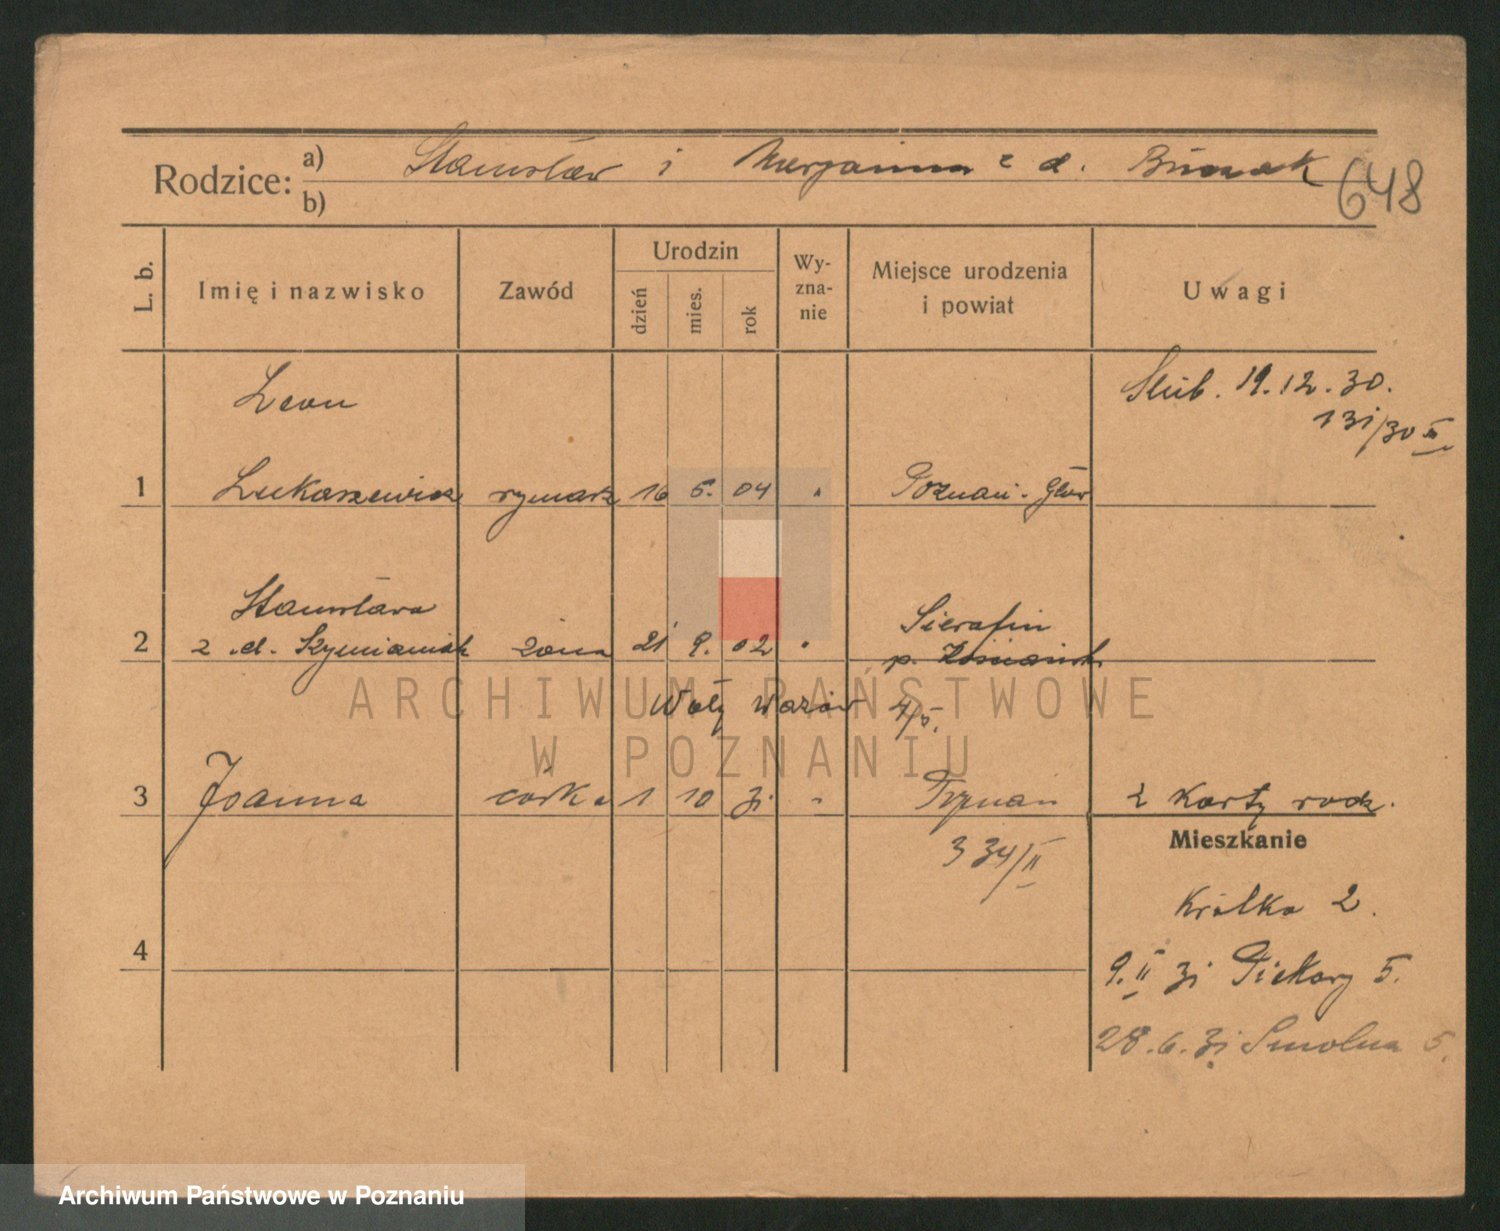 Rodzice: a) Stanisław i Marjanna z d. Bursak
b)
648
L. b. Imię i nazwisko Zawód Urodzin dzień mies. rok Wy-zna-nie Miejsce urodzenia i powiat Uwagi
Leon Ślub. 19.12.30.
131/30 III
1 Łukaszewicz rymarz 16 5. 04 " Poznań-Głów
Stanisława Sierafin
2 z d. Szymaniak żona 21 9. 02 " p.
Wały Wazów 4/5.
3 Joanna córka 1 10 31 " Poznań 2 karty rodz.
Mieszkanie
334/II
Krótka 2.
4
9.II 31 Piekary 5.
28.6.31 Smolna 5.
ARCHIWUM PAŃSTWOWE
W POZNANIU
Archiwum Państwowe w Poznaniu